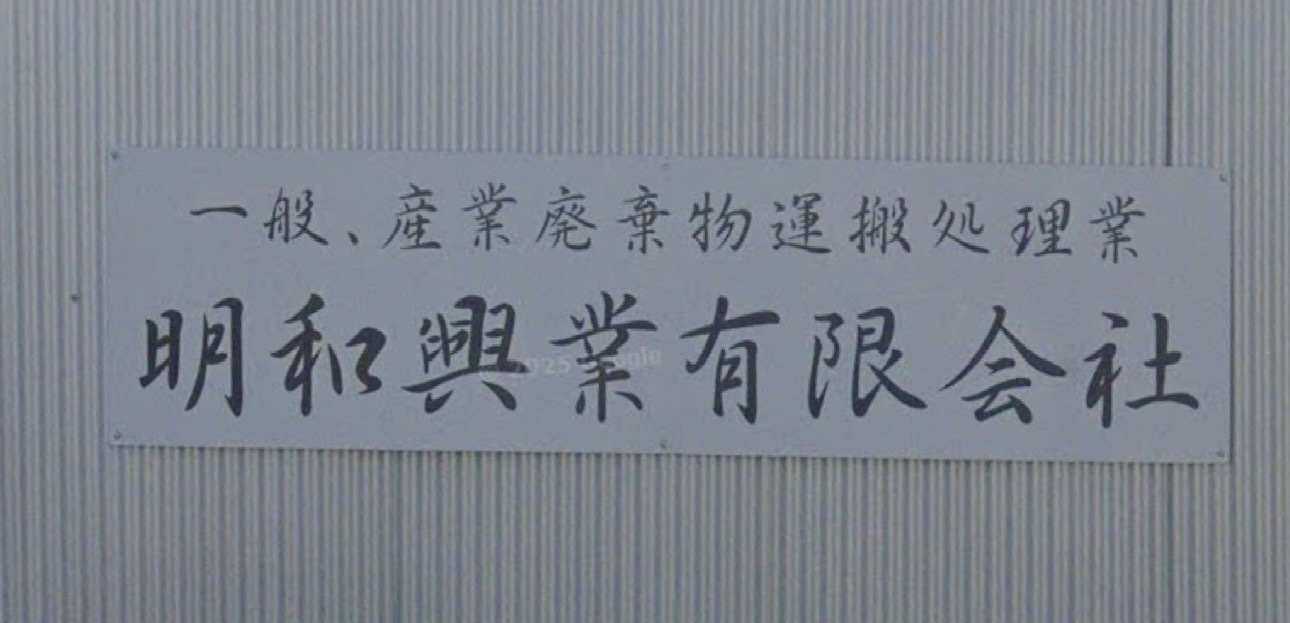 一般、産業廃棄物運搬処理業
明和興業有限会社